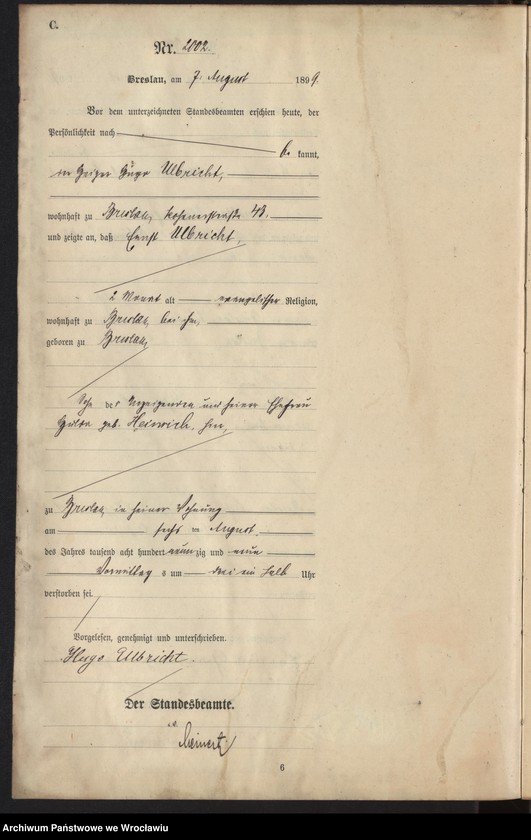 C.
Nr. 2002.
Breslau, am 7. August 1899.
Vor dem unterzeichneten Standesbeamten erschien heute, der
Persönlichkeit nach
be kannt,
Hugo Ulbricht,
wohnhaft zu Breslau, 48.
und zeigte an, daß Ernst Ulbricht,
2 Monat alt evangelischer Religion,
wohnhaft zu Breslau, bei ihm,
geboren zu Breslau,
Sohn des Anzeigenden und seiner Ehefrau
geb. Heinrich,
zu Breslau, in seiner Wohnung
am sechs ten August
des Jahres tausend acht hundert neun zig und neun
Vormittag s um drei ein halb Uhr
verstorben sei.
Vorgelesen, genehmigt und unterschrieben.
Hugo Ulbricht.
Der Standesbeamte.
6
Archiwum Państwowe we Wrocławiu